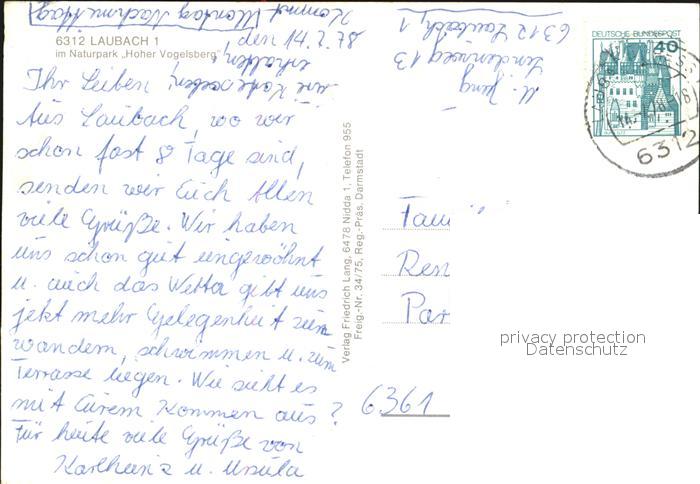 6312 LAUBACH 1
im Naturpark „Hoher Vogelsberg"
den 14.7.78
Ihr Lieben,
Aus Laubach, wo wir
schon fast 8 Tage sind,
senden wir Euch Allen
viele Grüße. Wir haben
uns schon gut eingewöhnt
u. auch das Wetter gibt uns
jetzt mehr Gelegenheit zum
wandern, schwimmen u. zum
Terrasse liegen. Wie sieht es
mit Eurem Kommen aus?
Für heute viele Grüße von
Karlheinz u. Ursula
Kommt Montag Nachmittag
erhalten,
Verlag Friedrich Lang, 6478 Nidda 1, Telefon 955
Freig.-Nr. 34/75, Reg.-Präs. Darmstadt
M. Jung
Lindenweg 13
6312 Laubach 1
DEUTSCHE BUNDESPOST
40
6312
Fam
Ren
Par
6361
privacy protection
Datenschutz